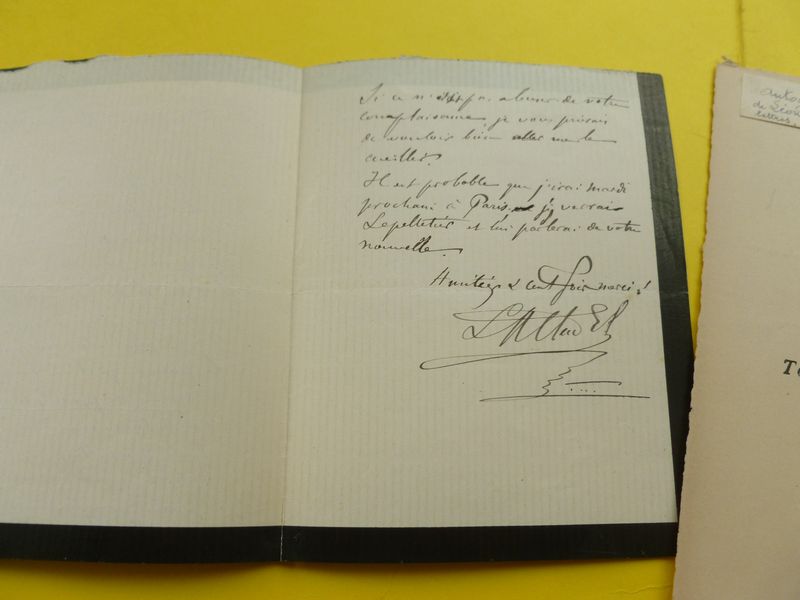 Si ce n'était pas abuser de votre
complaisance, je vous prierais
de vouloir bien aller me le
cueillir.
Il est probable que j'irai mardi
prochain à Paris, j'y verrai
Lepelletier et lui parlerai de votre
nouvelle.
Amitiés & cent fois merci!
autog
de Léon